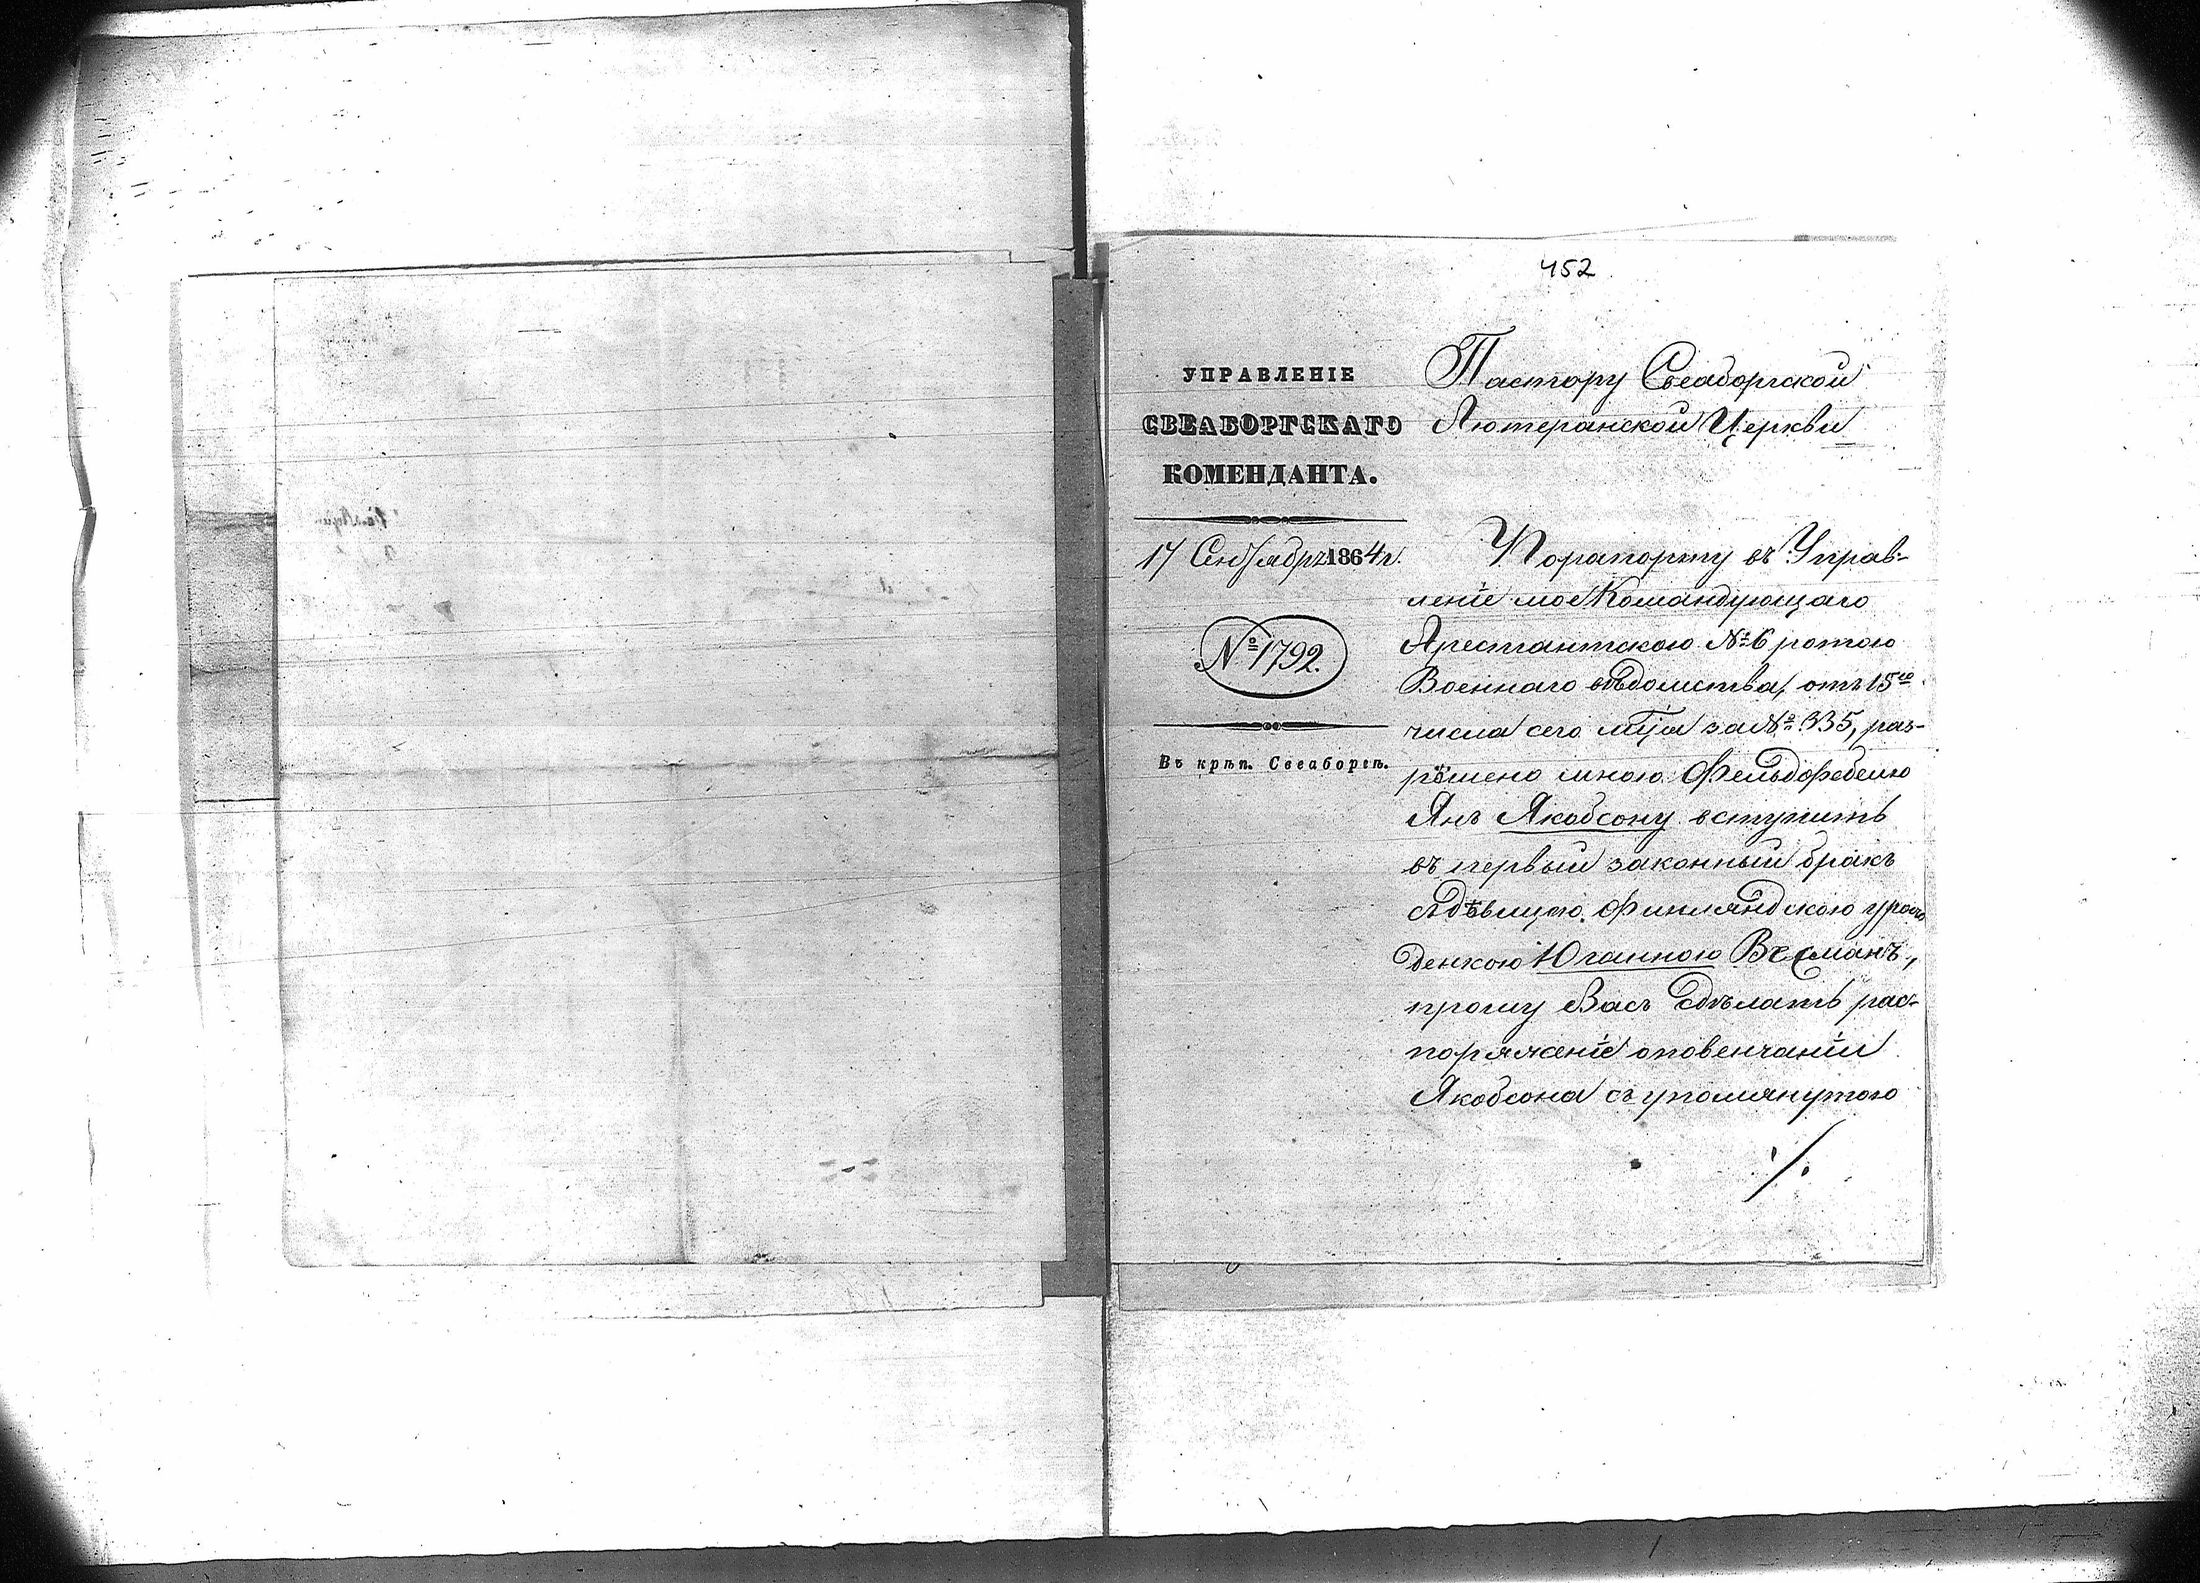 452
УПРАВЛЕНІЕ
СВЕАБОРГСКАГО
КОМЕНДАНТА.
17 Сентября 1864 г.
№ 1792.
Въ крѣп. Свеаборгѣ.
Пастору Свеаборгской
Лютеранской Церкви
По рапорту въ Управ-
леніе мое Командующаго
Арестантскою № 6 ротою
Военнаго вѣдомства, отъ 15го
числа сего м-ца за № 335, раз-
рѣшено мною Фельдфебелю
Янъ Якобсону вступить
въ первый законный бракъ
съ дѣвицею Финляндскою урож-
денкою Юганною Весманъ,
прошу Васъ сдѣлать рас-
поряженіе о повенчаніи
Якобсона съ упомянутою
./.